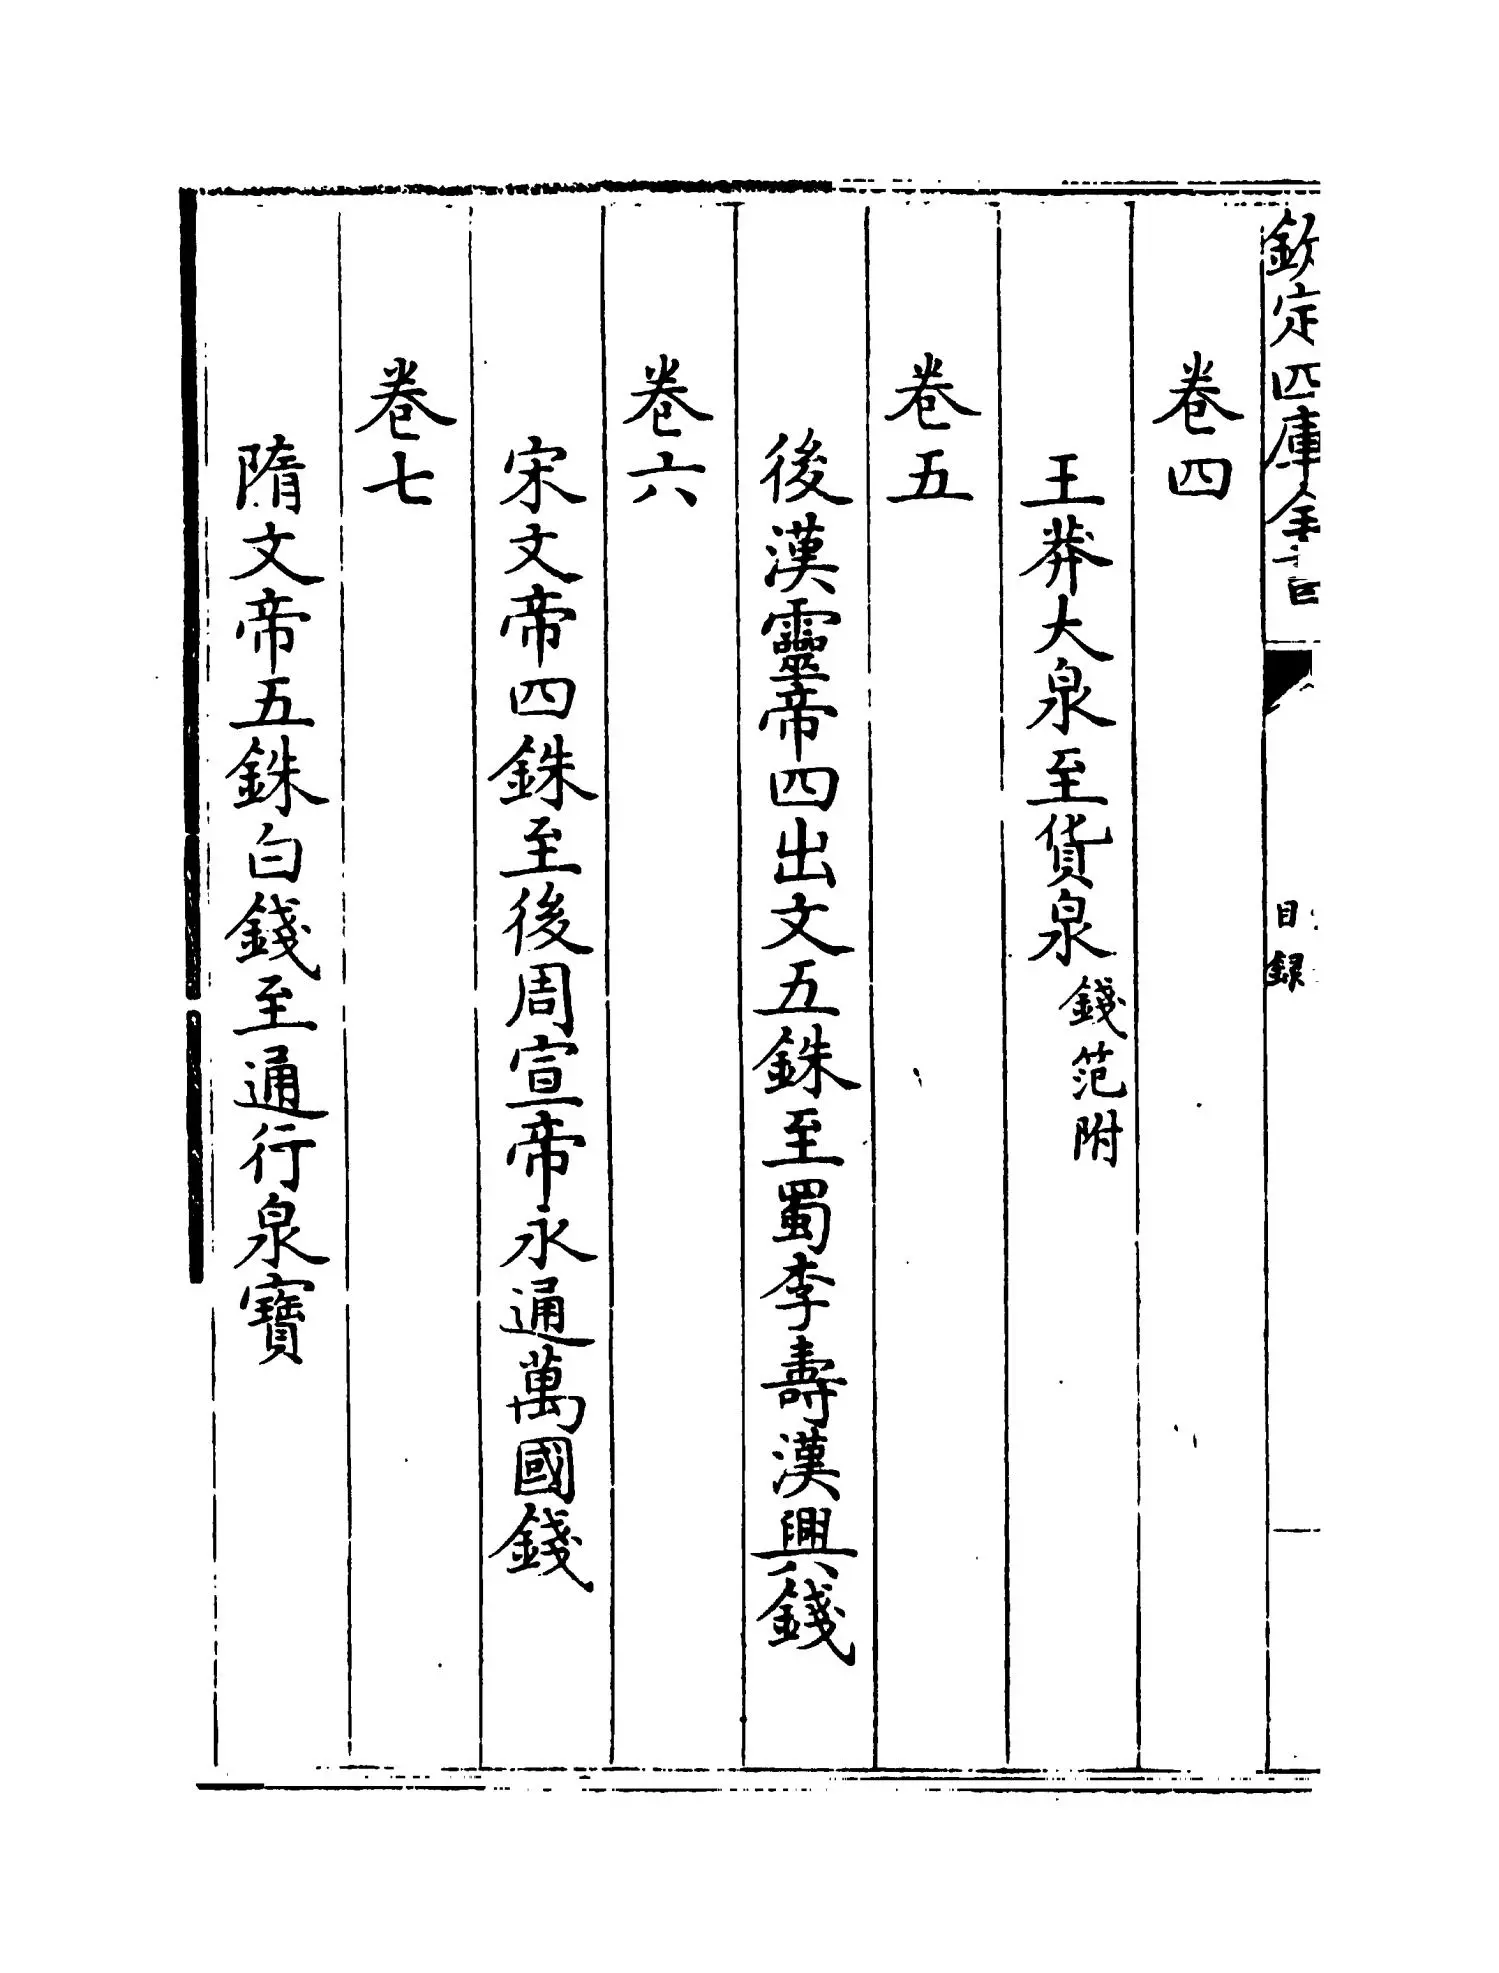 欽定四庫全書
目錄
卷四
王莽大泉至貨泉錢范附
卷五
後漢靈帝四出文五銖至蜀李壽漢興錢
卷六
宋文帝四銖至後周宣帝永通萬國錢
卷七
隋文帝五銖白錢至通行泉寶